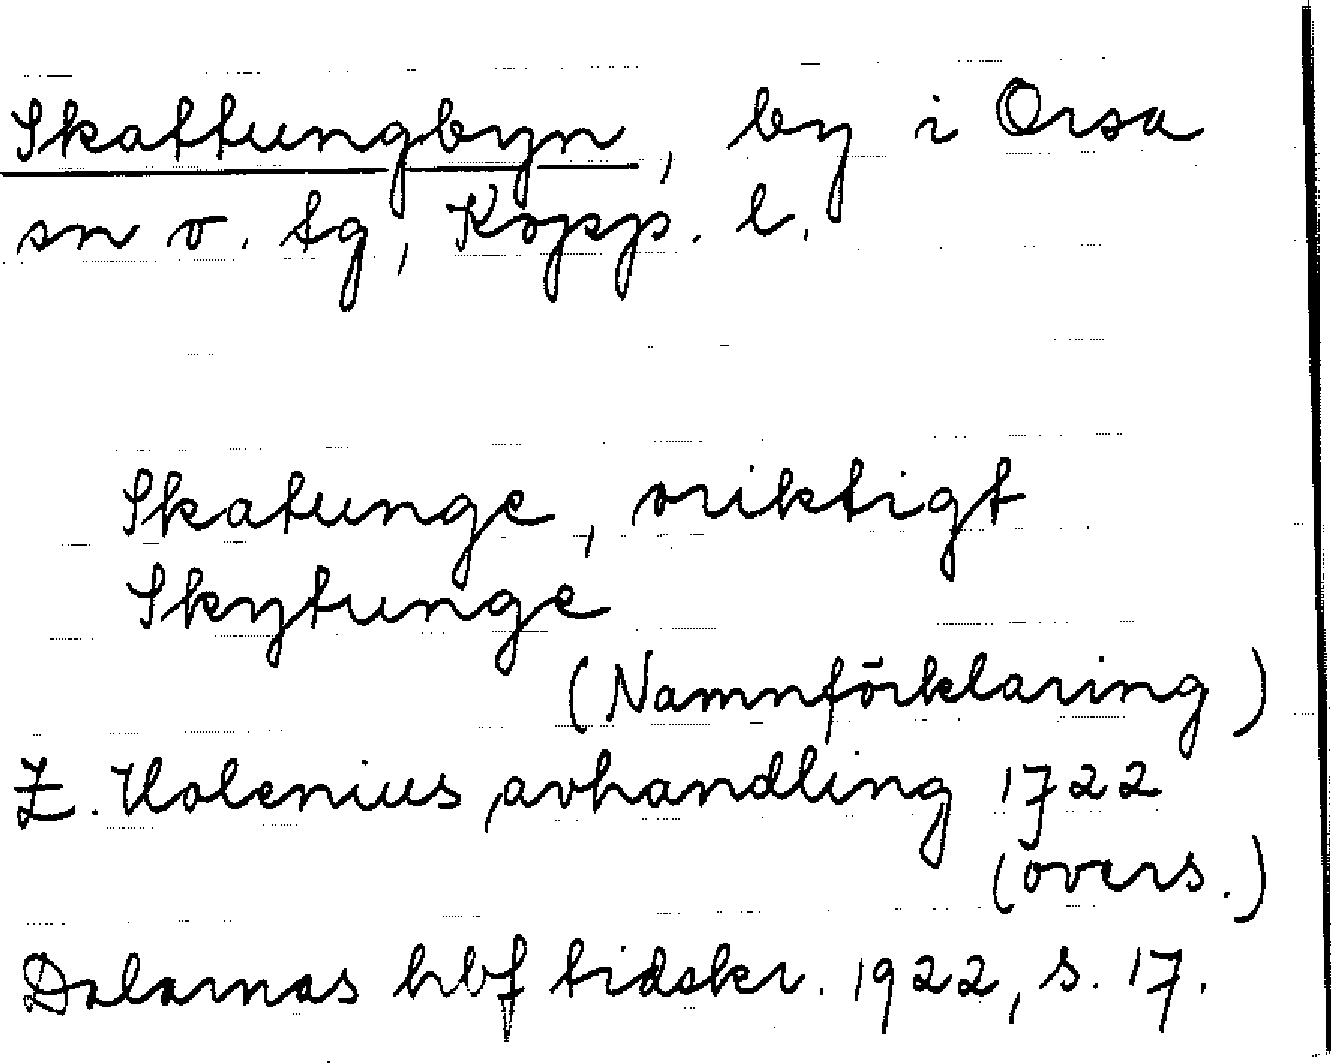 Skattungbyn, by i Orsa
sn o. tg, Kopp. l.
Skatunge, oriktigt
Skytunge
(Namnförklaring)
Z. Holenius, avhandling 1722
(övers.)
Dalarnas hbf tidskr. 1922, s. 17.